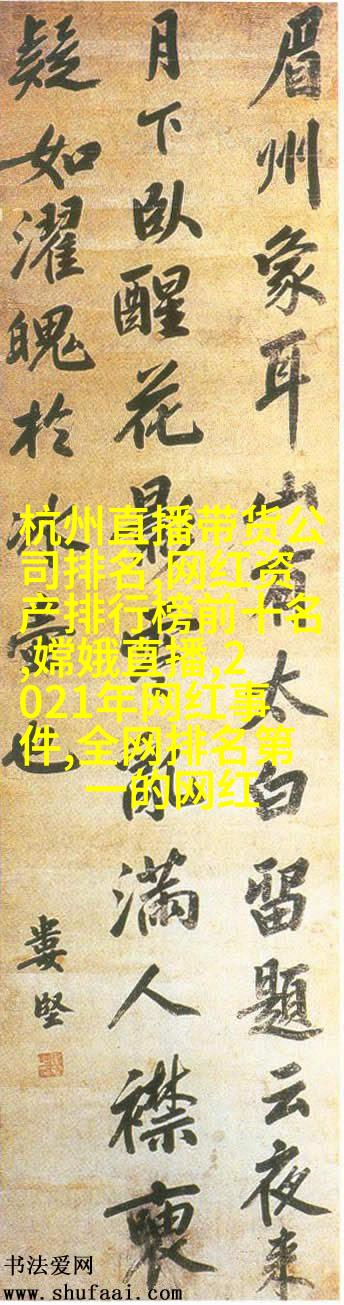 眉州象耳山有太白留題云夜来
月下臥醒花影亂滿人襟
疑如濯魄於冰壺也
婁堅
杭州直播带货公
司排名,网红资
产排行榜前十名
,嫦娥直播,2
021年网红事
件,全网排名第
一的网红
书法爱网
www.shufaai.com